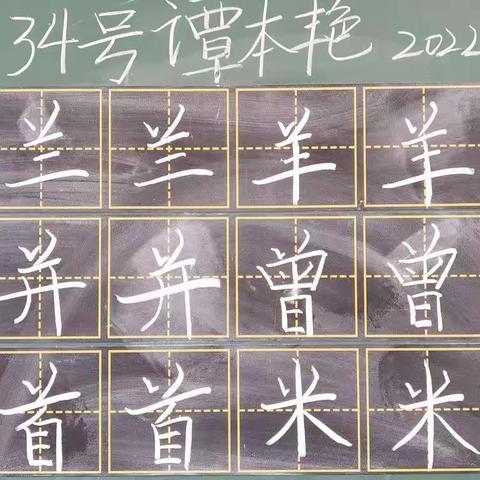 34号谭本艳 2022
兰 兰 羊 羊
并 并 曾 曾
首 首 米 米